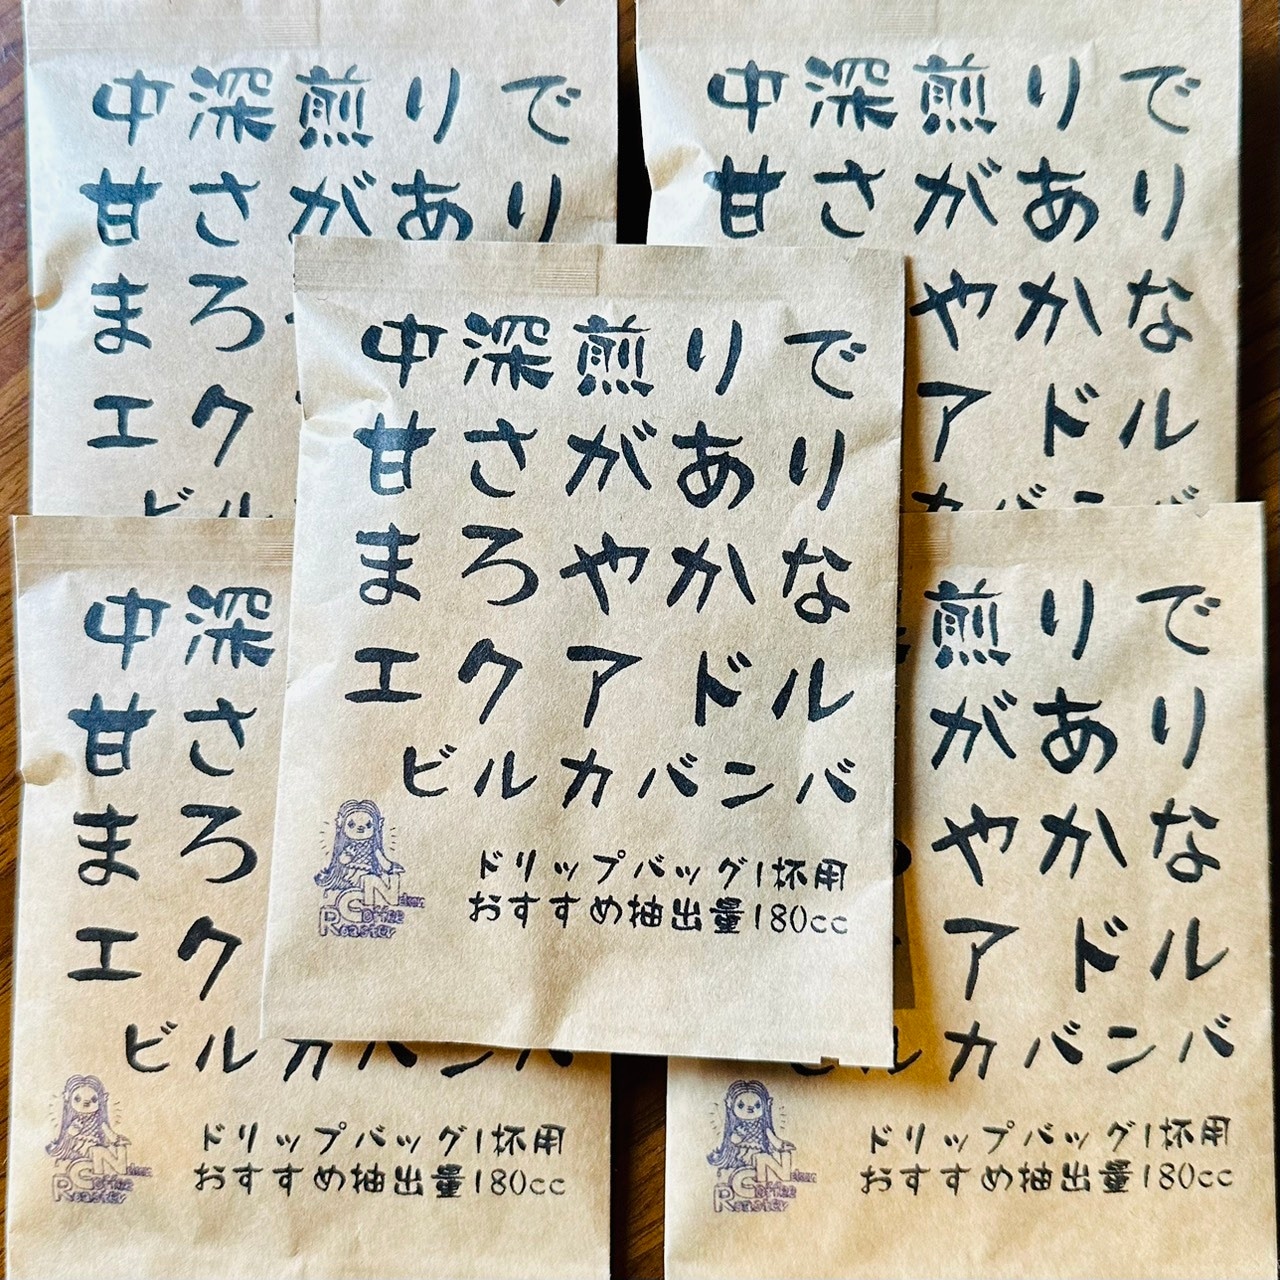 中深煎りで
甘さがあり
まろ
エク
ビル
中深煎りで
甘さがあり
やかな
アドル
カバンバ
中深煎りで
甘さがあり
まろやかな
エクアドル
ビルカバンバ
ドリップバッグ1杯用
おすすめ抽出量180cc
Coffee
Roaster
中深
甘さ
まろ
エク
ビルカバンバ
ドリップバッグ1杯用
おすすめ抽出量180cc
Coffee
Roaster
煎りで
があり
やかな
アドル
ルカバンバ
ドリップバッグ1杯用
おすすめ抽出量180cc
Coffee
Roaster